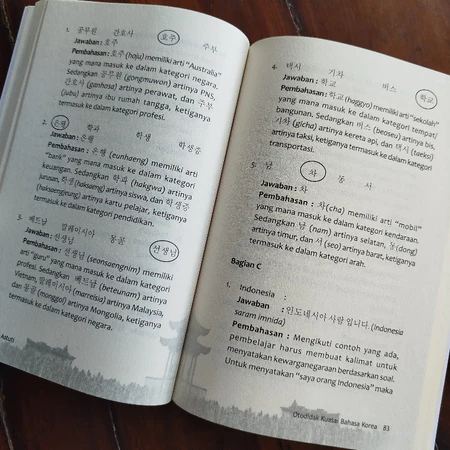 1. 공무원 간호사 호주 주부
Jawaban : 호주
Pembahasan : 호주 (hoju) memiliki arti "Australia"
yang mana masuk ke dalam kategori negara.
Sedangkan 공무원 (gongmuwon) artinya PNS,
간호사 (ganhosa) artinya perawat, dan 주부
(jubu) artinya ibu rumah tangga, ketiganya
termasuk ke dalam kategori profesi.
2. 은행 학과 학생 학생증
Jawaban : 은행
Pembahasan : 은행 (eunhaeng) memiliki arti
"bank" yang mana masuk ke dalam kategori
keuangan. Sedangkan 학과 (hakgwa) artinya
jurusan, 학생 (haksaeng) artinya siswa, dan 학생증
(haksaengjeung) artinya kartu pelajar, ketiganya
termasuk ke dalam kategori pendidikan.
3. 베트남 말레이시아 몽골 선생님
Jawaban : 선생님
Pembahasan : 선생님 (seonsaengnim) memiliki
arti "guru" yang mana masuk ke dalam kategori
profesi. Sedangkan 베트남 (beteunam) artinya
Vietnam, 말레이시아 (marreisia) artinya Malaysia,
dan 몽골 (monggol) artinya Mongolia, ketiganya
termasuk ke dalam kategori negara.
Astuti
4. 택시 기차 버스 학교
Jawaban : 학교
Pembahasan : 학교 (haggyo) memiliki arti "sekolah"
yang mana masuk ke dalam kategori tempat/
bangunan. Sedangkan 버스 (beoseu) artinya bis,
기차 (gicha) artinya kereta api, dan 택시 (taeksi)
artinya taksi, ketiganya termasuk ke dalam kategori
transportasi.
5. 남 차 동 서
Jawaban : 차
Pembahasan : 차 (cha) memiliki arti "mobil"
yang mana masuk ke dalam kategori kendaraan.
Sedangkan 남 (nam) artinya selatan, 동 (dong)
artinya timur, dan 서 (seo) artinya barat, ketiganya
termasuk ke dalam kategori arah.
Bagian C
1. Indonesia :
Jawaban : 인도네시아 사람 입니다. (Indonesia
saram imnida)
Pembahasan : Mengikuti contoh yang ada,
pembelajar harus membuat kalimat untuk
menyatakan kewarganegaraan berdasarkan soal.
Untuk menyatakan "saya orang Indonesia" maka
Otodidak Kuasai Bahasa Korea 83